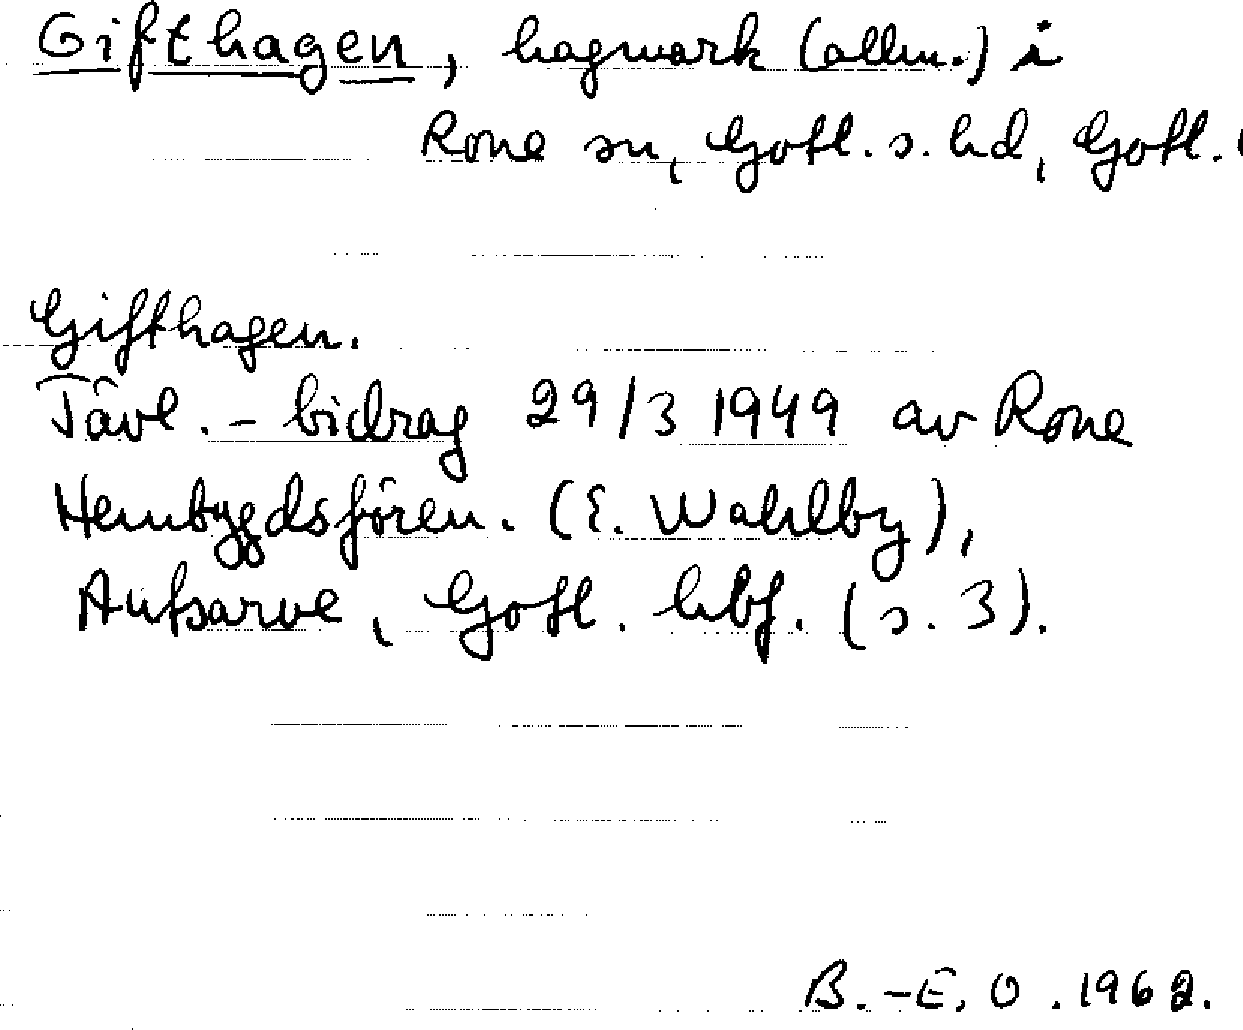 Gifthagen, hagmark (allm.) i
Rone sn, Gotl. s. hd, Gotl. l
Gifthagen.
Tävl.-bidrag 29/3 1949 av Rone
Hembygdsfören. (E. Wahlby),
Autsarve, Gotl. hbf. (s. 3).
B.-E. O. 1962.